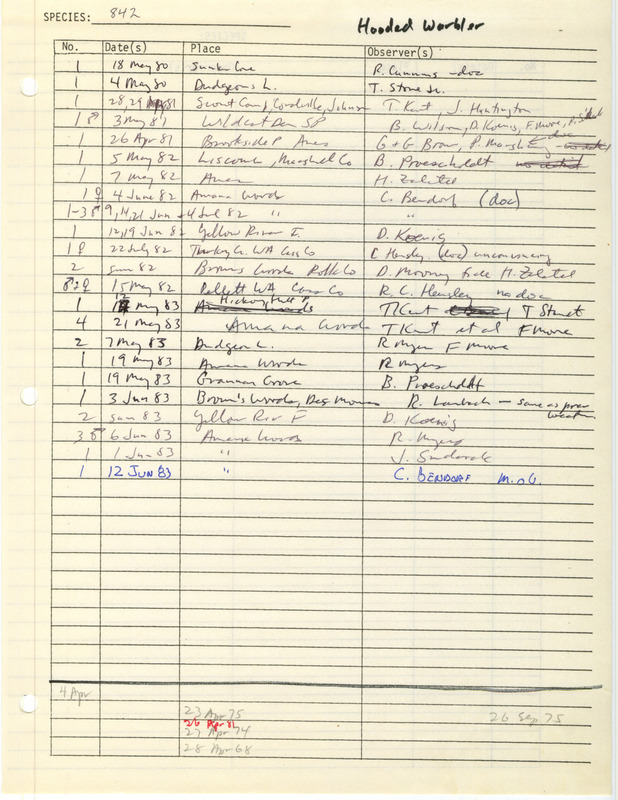 SPECIES: 842
Hooded Warbler
No. Date(s) Place Observer(s)
1 18 May 80 Sunken Cove R. Cummins - doc
1 4 May 80 Dudgeon L. T. Stone Jr.
1 28, 29 81 Scout Camp, Coralville, Johnson T. Kent, J. Huntington
1 ♂ 3 May 81 Wildcat Den SP B. Wilson, D. Koenig, F. Moore, P.
1 26 Apr 81 Brookside P Ames G + G Brow, P. Martsching doc
1 5 May 82 Liscomb, Marshall Co B. Proescholdt
1 7 May 82 Ames H. Zaletel
1 ♀ 4 June 82 Amana Woods C. Bendorf (doc)
1-3 ♂ 9, 14, 21 Jun + 4 Jul 82 " "
1 12, 19 Jun 82 Yellow River F. D. Koenig
1 ♀ 22 July 82 WA Cass Co C Hensley (doc) unconvincing
2 Jun 82 Brown's Woods Polk Co D. Mooney fide H. Zaletel
♂ 2 ♀ 15 May 82 Pellett WA Cass Co R. C. Hensley no doc
1 12 May 83 Hickory Hill P T Kent, T Staudt
4 21 May 83 Amana Woods T Kent et al F Moore
2 7 May 83 Dudgeon L. R Myers F Moore
1 19 May 83 Amana Woods R Myers
1 19 May 83 Grammer Grove B. Proescholdt
1 3 Jun 83 Brown's Woods, Des Moines R. Laubach — same as prev
2 Jun 83 Yellow Riv F D. Koenig
3 ♂ 6 Jun 83 Amana Woods R. Myers
1 1 Jun 83 " J. Sandrock
1 12 JUN 83 " C. BENDORF M. ♂ ♀.
4 Apr
23 Apr 75 26 Sep 75
26 Apr 81
27 Apr 74
28 Apr 68